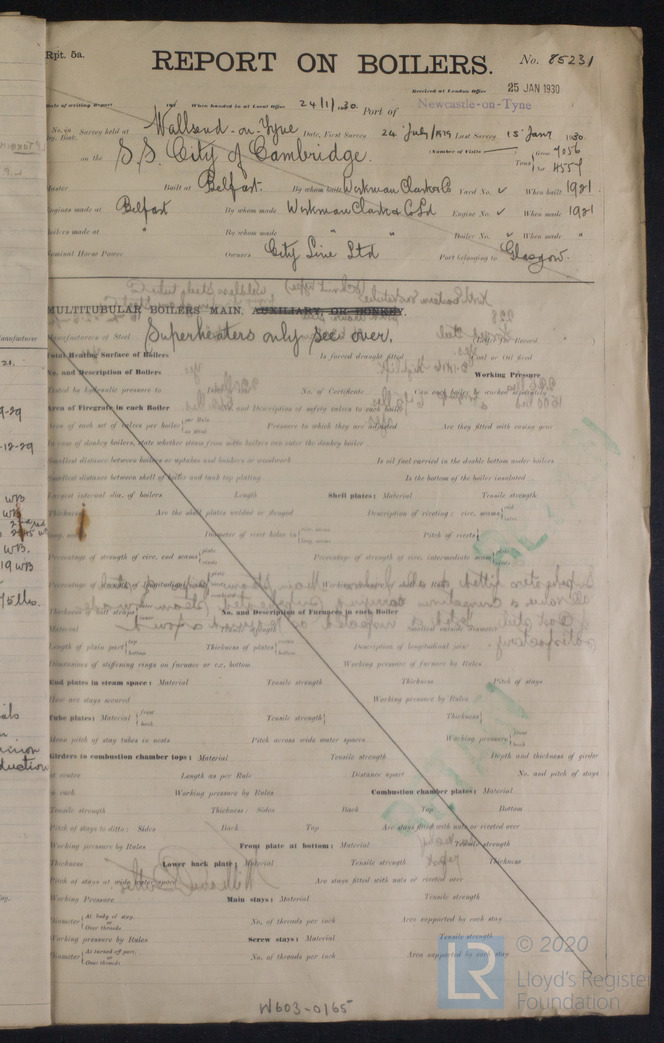 Rpt. 5a.
REPORT ON BOILERS.
No. 85231
Received at London Office 25 JAN 1930
Date of writing Report 19 When handed in at Local Office 24/1/1930. Port of Newcastle-on-Tyne
No. in Reg. Book. Survey held at Wallsend-on-Tyne Date, First Survey 24 July/1929 Last Survey 15 Jany 1930
on the S.S. City of Cambridge. (Number of Visits
Tons Gross 7056
Net 4554
Master Built at Belfast. By whom built Workman Clark & Co Yard No. ✓ When built 1921
Engines made at Belfast By whom made Workman Clark & Co Ltd Engine No. ✓ When made 1921
Boilers made at " By whom made " " Boiler No. " When made "
Nominal Horse Power Owners City Line Ltd Port belonging to Glasgow.
MULTITUBULAR BOILERS MAIN, AUXILIARY, OR DONKEY.
Manufacturers of Steel Superheaters only see over.
Total Heating Surface of Boilers Is forced draught fitted Coal or Oil fired
No. and Description of Boilers Working Pressure
Tested by hydraulic pressure to No. of Certificate Can each boiler be worked separately
Area of Firegrate in each Boiler No. and Description of safety valves to each boiler
Area of each set of valves per boiler Pressure to which they are adjusted Are they fitted with easing gear
In case of donkey boilers, state whether steam from main boilers can enter the donkey boiler
Smallest distance between boilers or uptakes and bunkers or woodwork Is oil fuel carried in the double bottom under boilers
Smallest distance between shell of boiler and tank top plating Is the bottom of the boiler insulated
Largest internal dia. of boilers Length Shell plates: Material Tensile strength
Thickness Are the shell plates welded or flanged Description of riveting: circ. seams
long. seams Diameter of rivet holes in Pitch of rivets
Percentage of strength of circ. end seams Percentage of strength of circ. intermediate seam
Percentage of strength of longitudinal joint
Thickness of butt straps No. and Description of Furnaces in each Boiler
Material Tensile strength Smallest outside diameter
Length of plain part top
bottom Thickness of plates Description of longitudinal joint
Dimensions of stiffening rings on furnace or c.c. bottom Working pressure of furnace by Rules
End plates in steam space: Material Tensile strength Thickness Pitch of stays
How are stays secured Working pressure by Rules
Tube plates: Material front
back Tensile strength Thickness
Mean pitch of stay tubes in nests Pitch across wide water spaces Working pressure front
back
Girders to combustion chamber tops: Material Tensile strength Depth and thickness of girder
at centre Length as per Rule Distance apart No. and pitch of stays
in each Working pressure by Rules Combustion chamber plates: Material
Tensile strength Thickness: Sides Back Top Bottom
Pitch of stays to ditto: Sides Back Top Are stays fitted with nuts or riveted over
Working pressure by Rules Front plate at bottom: Material Tensile strength
Thickness Lower back plate: Material Tensile strength Thickness
Pitch of stays at wide water space Are stays fitted with nuts or riveted over
Working Pressure Main stays: Material Tensile strength
Diameter At body of stay,
or
Over threads No. of threads per inch Area supported by each stay
Working pressure by Rules Screw stays: Material Tensile strength
Diameter At turned off part,
or
Over threads No. of threads per inch Area supported by each stay
W603-0165
© 2020
LR
Lloyd's Register
Foundation